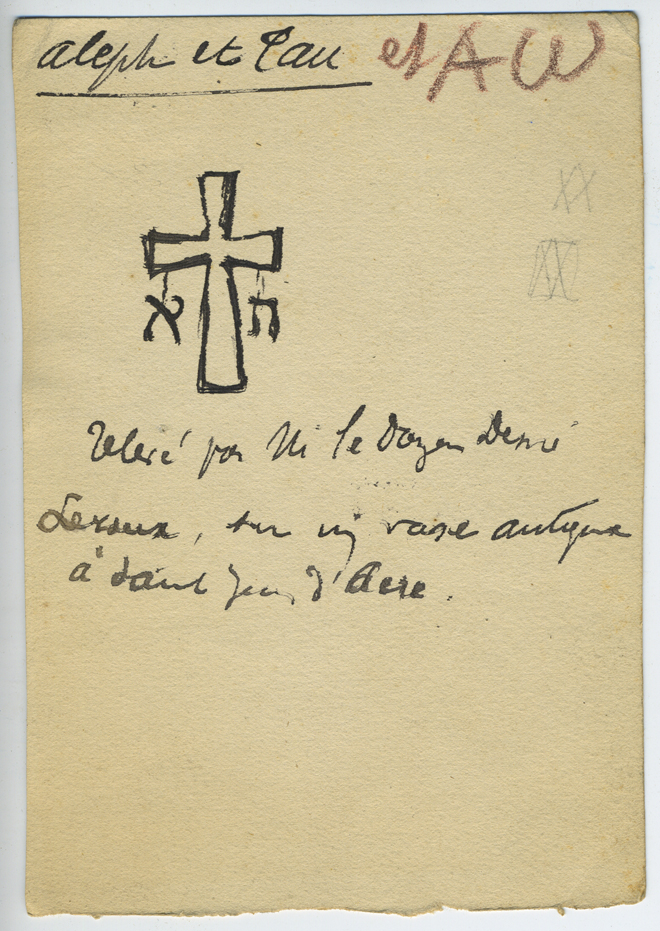 aleph et Tau et A ω
XX
XX
א ת
Relevé par M le Doyen Desiré
Leroux, sur un vase antique
à Saint Jean d'Acre.